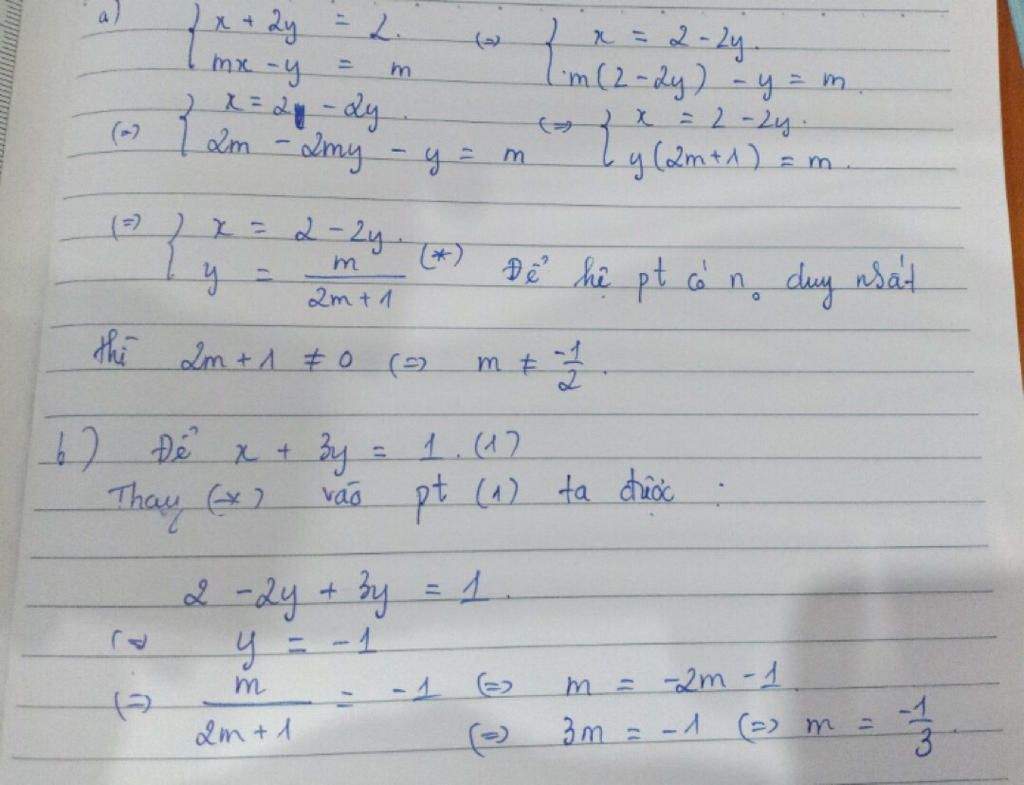 a) { x + 2y = 2. (=) { x = 2 - 2y.
mx - y = m m(2 - 2y) - y = m.
(=) { x = 2 - 2y. (=) { x = 2 - 2y.
2m - 2my - y = m y(2m+1) = m.
(=) { x = 2 - 2y.
y = m/(2m+1) (*) Để hệ pt có n₀ duy nhất
thì 2m + 1 ≠ 0 (=) m ≠ -1/2.
b) Để x + 3y = 1. (1)
Thay (*) vào pt (1) ta được :
2 - 2y + 3y = 1.
(=) y = -1
(=) m/(2m+1) = -1 (=) m = -2m - 1
(=) 3m = -1 (=) m = -1/3.